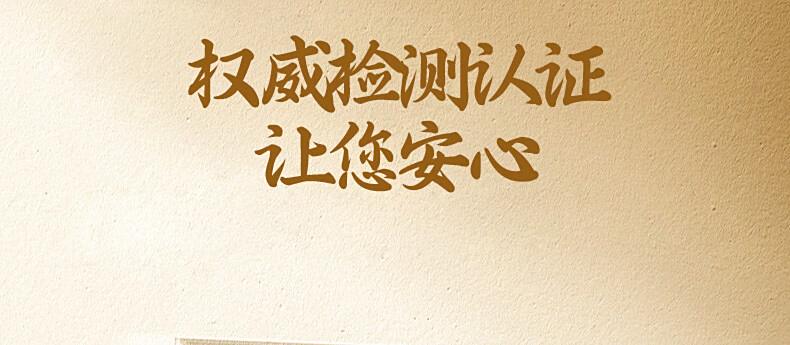 权威检测认证
让您安心